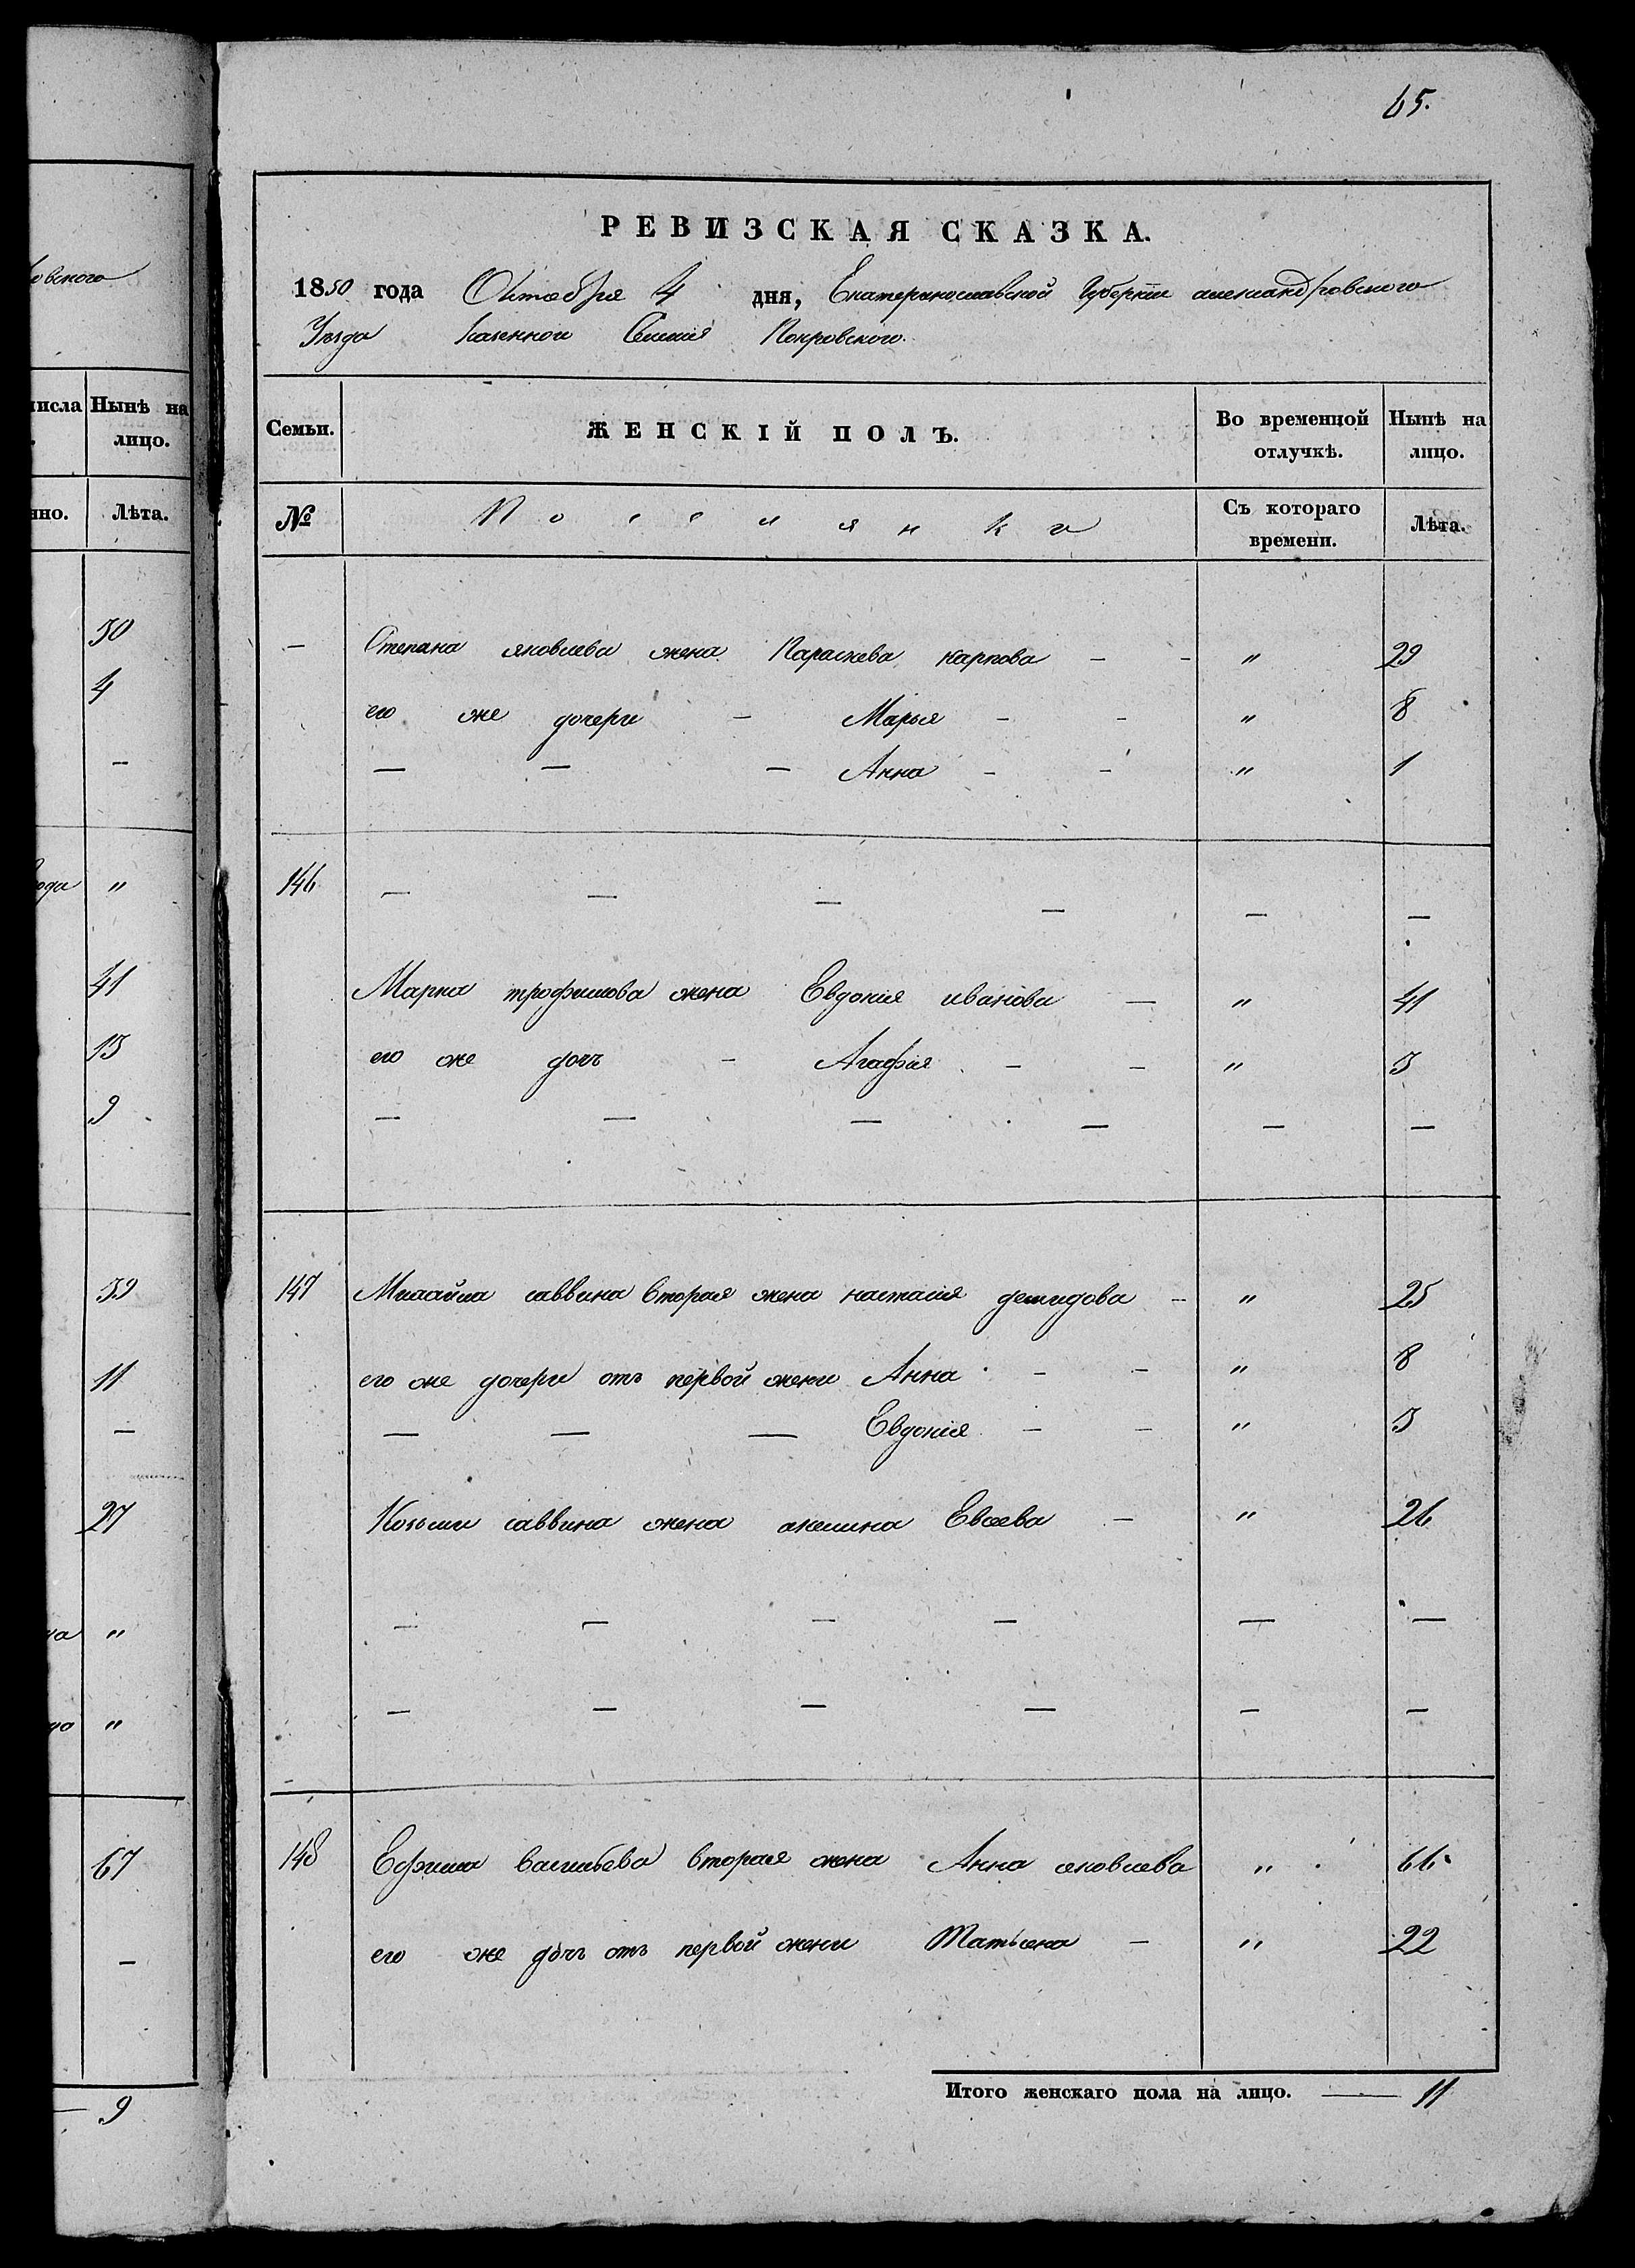 65.
овского
исла Нынѣ на
лицо.
нно. Лѣта.
30
4
–
года "
41
13
9
39
11
–
27
на "
"
67
–
— 9
РЕВИЗСКАЯ СКАЗКА.
1850 года Октября 4 дня, Екатеринославской Губернии александровского
Уезда Казенного Селения Покровского.
Семьи. ЖЕНСКІЙ ПОЛЪ. Во временной отлучкѣ. Нынѣ на лицо.
№ Поселянки Съ котораго времени. Лѣта.
– Степана яковлева жена Параскева карпова – – " 29
его же дочери – Марья – – " 8
— — – Анна – – " 1
146 — — — — — —
Марка трофимова жена Евдокия иванова — " 41
его же дочъ – Агафия – – " 3
— — — — — —
147 Михайла саввина вторая жена настасия демидова – " 25
его же дочери отъ первой жены Анна – – " 8
— — — Евдокия – – " 3
Козьмы саввина жена акилина Евсеева – " 26
— — — — — —
— — — — — —
148 Ефима васильева вторая жена Анна яковлева " 66
его же дочъ отъ первой жены Татьяна – " 22
Итого женскаго пола на лицо. — 11